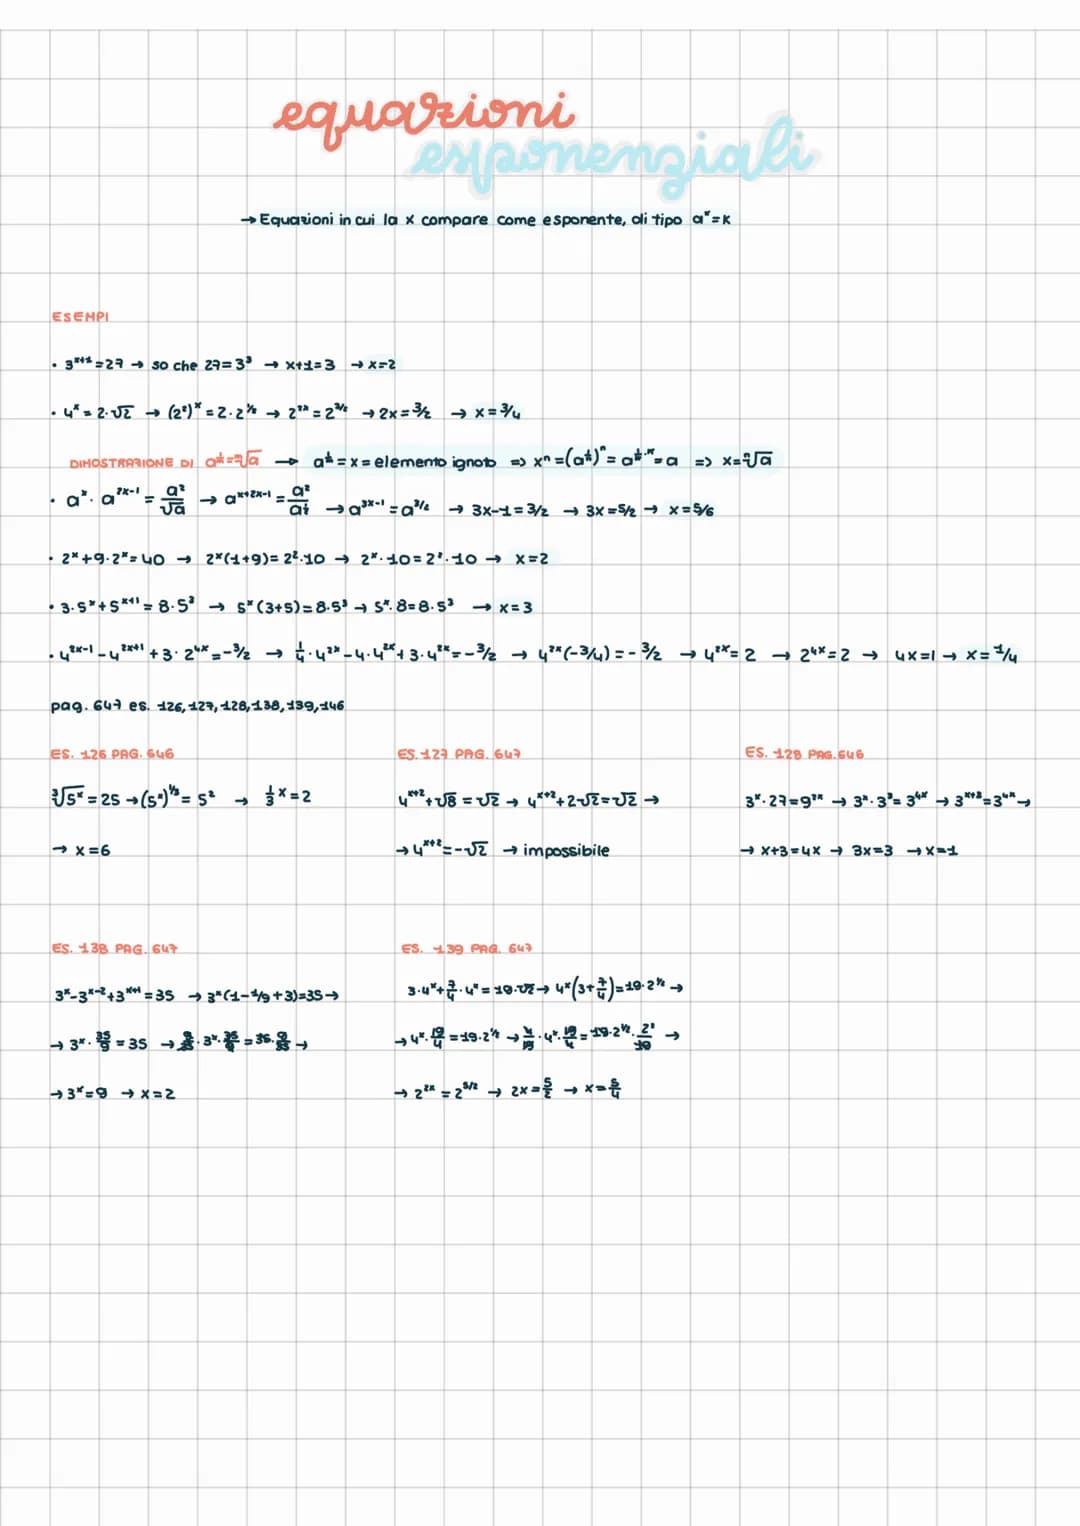 equazioni
esponenziali
→ Equazioni in cui la x compare come esponente, di tipo aˣ=k
ESEMPI
• 3ˣ⁺¹=27 → so che 27=3³ → x+1=3 → x=2
• 4ˣ=2·√2 → (2²)ˣ=2·2^½ → 2²ˣ=2^3/2 → 2x=3/2 → x=3/4
DIMOSTRAZIONE DI a^1/n=ⁿ√a → a^1/n=x=elemento ignoto => xⁿ=(a^1/n)ⁿ=a^1/n·ⁿ=a => x=ⁿ√a
• aˣ·a²ˣ⁻¹=a²/√a → aˣ⁺²ˣ⁻¹=a²/a^½ → a³ˣ⁻¹=a^3/2 → 3x-1=3/2 → 3x=5/2 → x=5/6
• 2ˣ+9·2ˣ=40 → 2ˣ(1+9)=2²·10 → 2ˣ·10=2²·10 → x=2
• 3·5ˣ+5ˣ⁺¹=8·5³ → 5ˣ(3+5)=8·5³ → 5ˣ·8=8·5³ → x=3
• 4²ˣ⁻¹-4²ˣ⁺¹+3·2⁴ˣ=-3/2 → 1/4·4²ˣ-4·4²ˣ+3·4²ˣ=-3/2 → 4²ˣ(-3/4)=-3/2 → 4²ˣ=2 → 2⁴ˣ=2 → 4x=1 → x=1/4
pag. 647 es. 126,127,128,138,139,146
ES. 126 PAG. 646
³√5ˣ=25 → (5ˣ)^1/3=5² → 1/3x=2
→ x=6
ES. 127 PAG. 647
4ˣ⁺²+√8=√2 → 4ˣ⁺²+2√2=√2 →
→ 4ˣ⁺²=-√2 → impossibile
ES. 128 PAG. 646
3ˣ·27=9²ˣ → 3ˣ·3³=3⁴ˣ → 3ˣ⁺³=3⁴ˣ →
→ x+3=4x → 3x=3 → x=1
ES. 138 PAG. 647
3ˣ-3ˣ⁻²+3ˣ⁺¹=35 → 3ˣ(1-1/9+3)=35 →
→ 3ˣ·35/9=35 → 9/35·3ˣ·35/9=35·9/35 →
→ 3ˣ=9 → x=2
ES. 139 PAG. 647
3·4ˣ+7/4·4ˣ=19·√2 → 4ˣ(3+7/4)=19·2^½ →
→ 4ˣ·19/4=19·2^½ → 4/19·4ˣ·19/4=19·2^½·2²/19 →
→ 2²ˣ=2^5/2 → 2x=5/2 → x=5/4